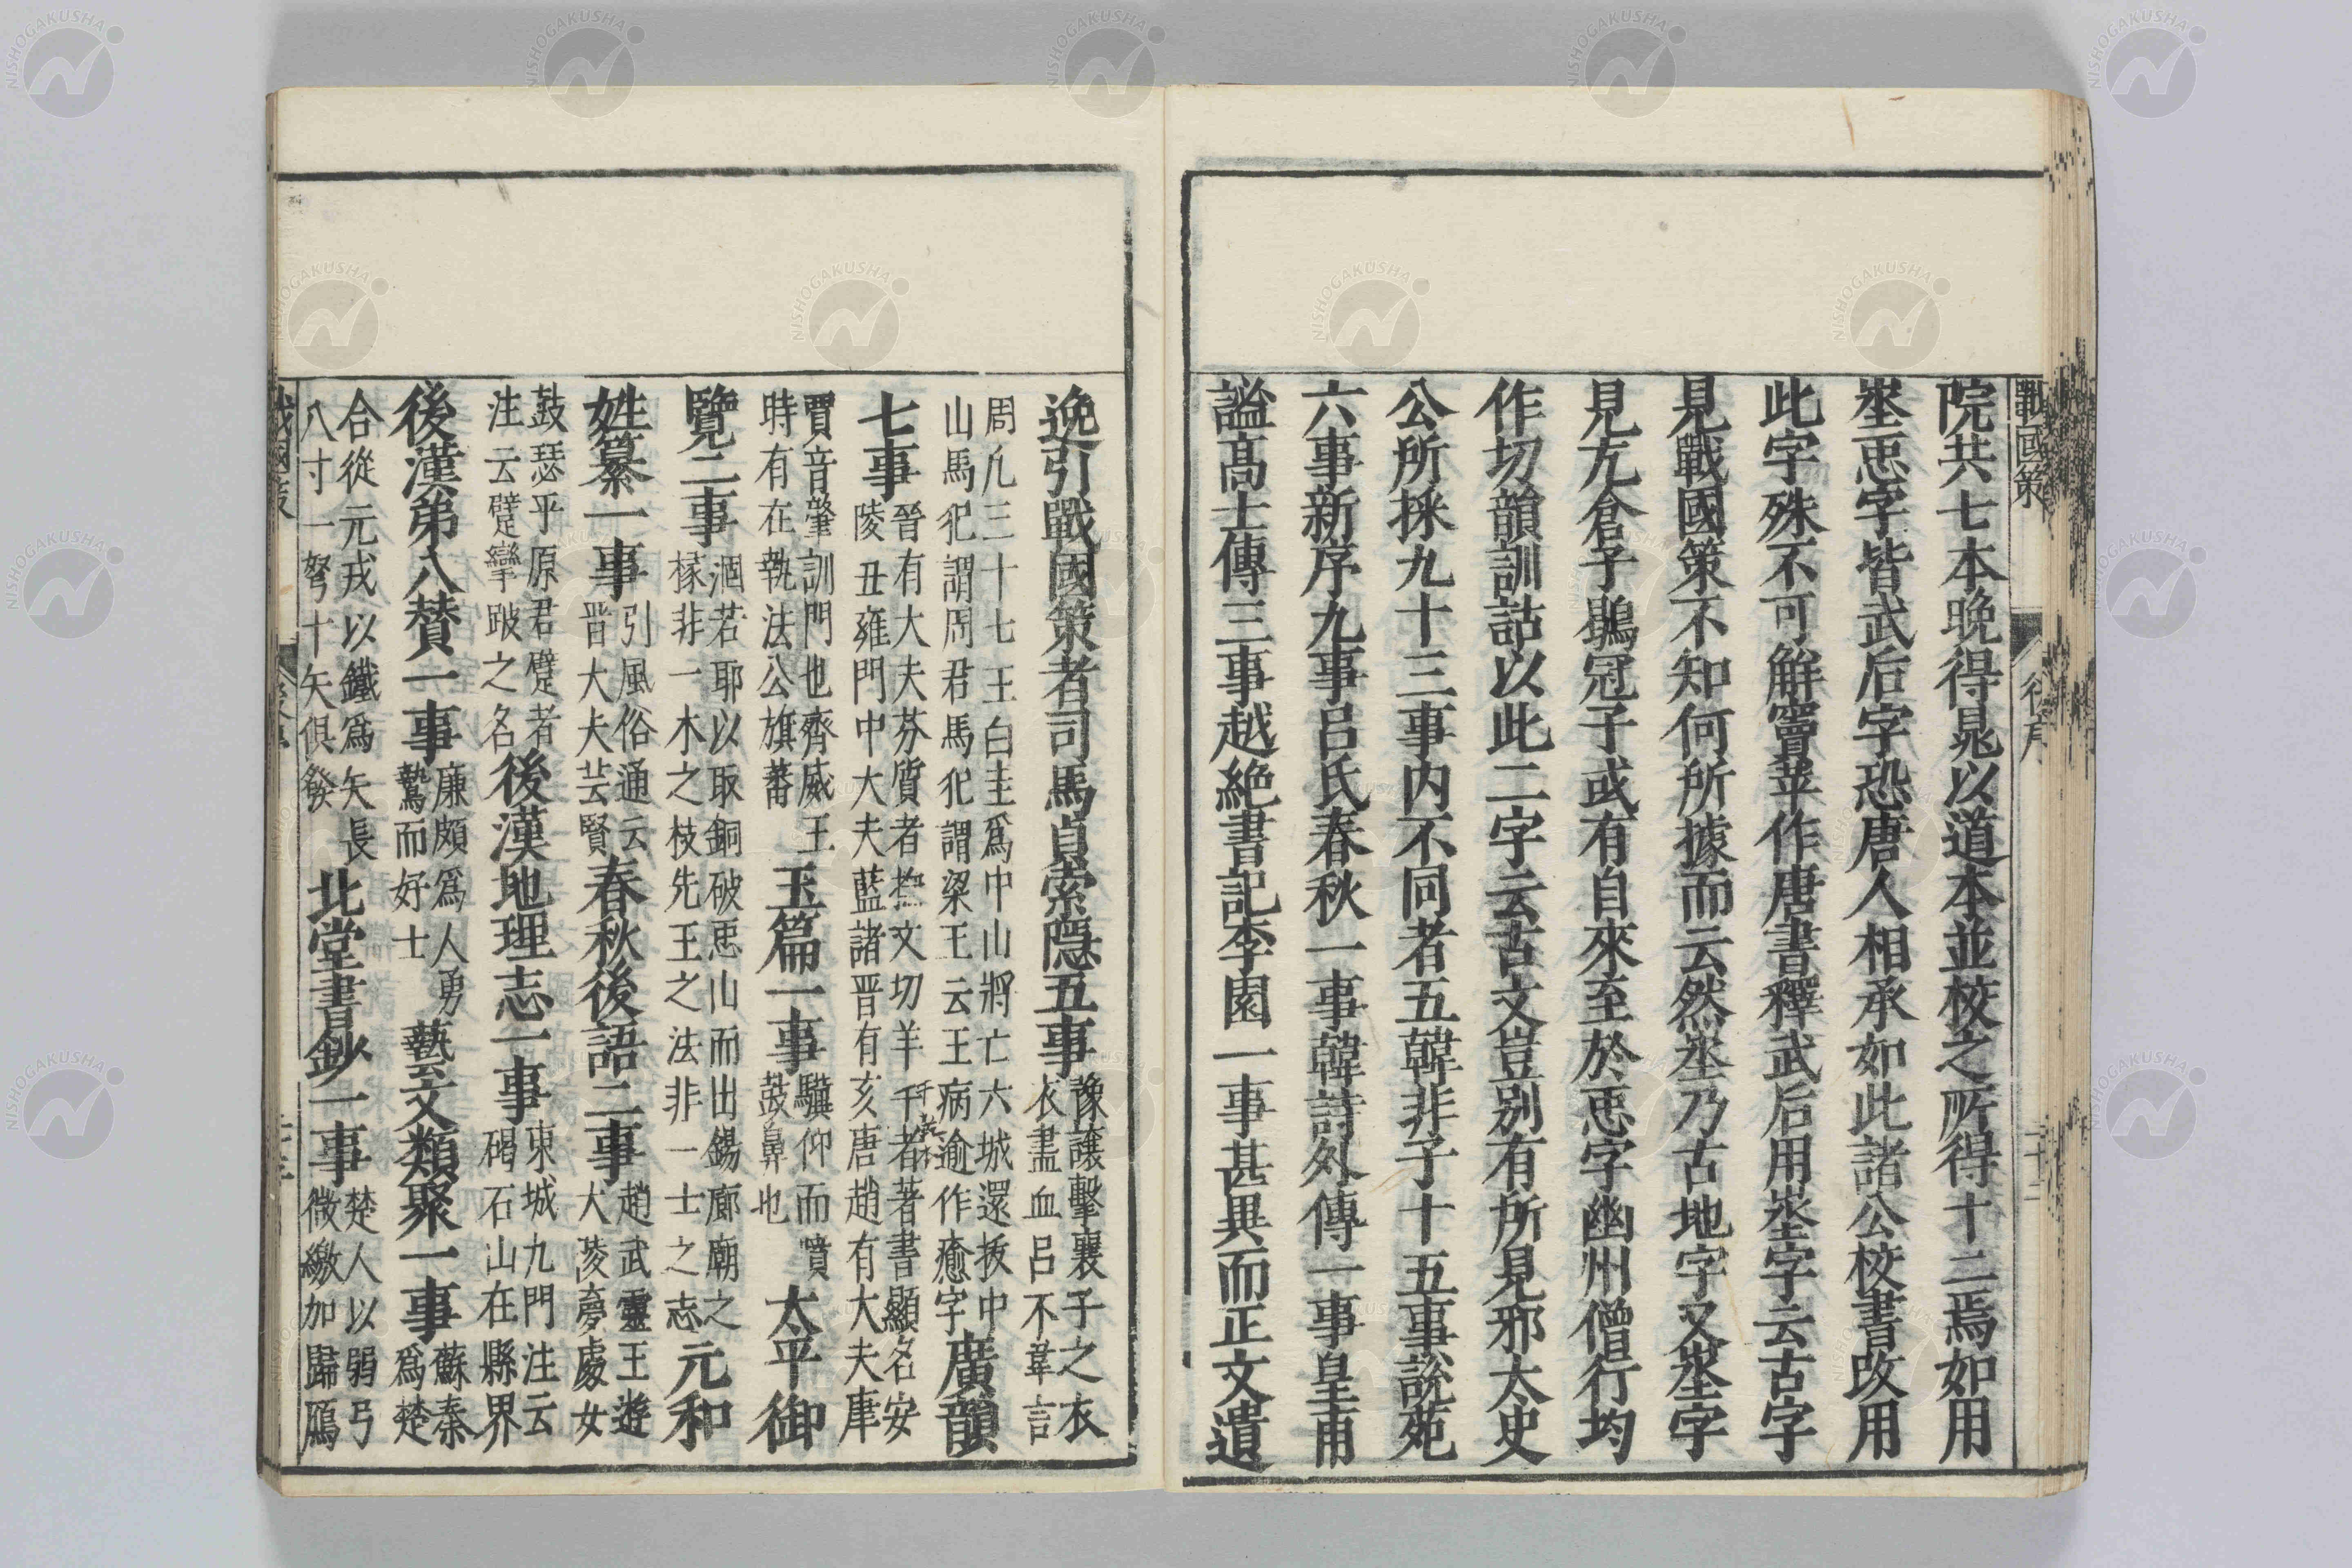 戰國策
後序
院共七本晚得晁以道本並校之所得十二焉如用
埊恖字皆武后字恐唐人相承如此諸公校書改用
此字殊不可解竇苹作唐書釋武后用埊字云古字
見戰國策不知何所據而云然埊乃古地字又埊字
見亢倉子鶡冠子或有自來至於恖字幽州僧行均
作切韻訓詁以此二字云古文豈別有所見邪太史
公所採九十三事内不同者五韓非子十五事說苑
六事新序九事呂氏春秋一事韓詩外傳一事皇甫
謐高士傳三事越絶書記李園一事甚異而正文遺
逸引戰國策者司馬貞索隱五事
豫讓擊襄子之衣
衣盡血呂不韋言
周凡三十七王白圭爲中山將亡六城還拔中
山馬犯謂周君馬犯謂梁王云王病逾作癒字
廣韻
七事
晉有大夫芬質者撫文切羊千者著書顯名安
陵丑雍門中大夫藍諸晋有亥唐趙有大夫
賈音肇訓門也齊威王
時有在執法公旗蕃
玉篇一事
驥仰而噴
鼓鼻也
太平御
覽二事
涸若耶以取銅破恖山而出錫廊廟之
椽非一木之枝先王之法非一士之志
元和
姓纂一事
引風俗通云
晋大夫芸賢
春秋後語二事
趙武靈王遊
大陵夢處女
鼓瑟乎原君躄者
注云躄攣跛之名
後漢地理志一事
東城九門注云
碣石山在縣界
後漢弟八贊一事
廉頗爲人勇
鷙而好士
藝文類聚一事
蘇秦
爲楚
合從元戎以鐵爲矢長
八寸一弩十矢俱發
北堂書鈔一事
楚人以弱弓
微繳加歸鴈
NISHOGAKUSHA